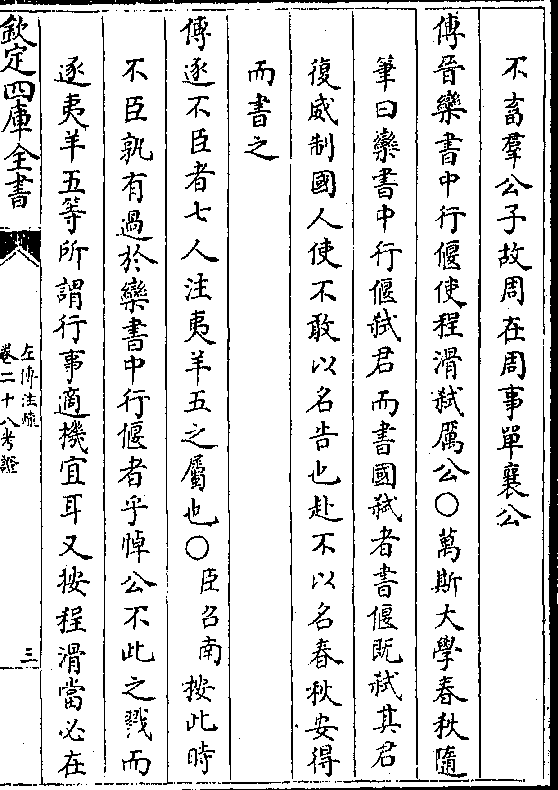 不畜羣公子故周在周事單襄公
傳晉欒書中行偃使程滑弑厲公○萬斯大學春秋隨
筆曰欒書中行偃弑君而書國弑者書偃既弑其君
復威制國人使不敢以名告也赴不以名春秋安得
而書之
傳逐不臣者七人注夷羊五之屬也○臣召南按此時
不臣孰有過於欒書中行偃者乎悼公不此之戮而
逐夷羊五等所謂行事適機宜耳又按程滑當必在
欽定四庫全書
左傳注疏
卷二十八考證
三